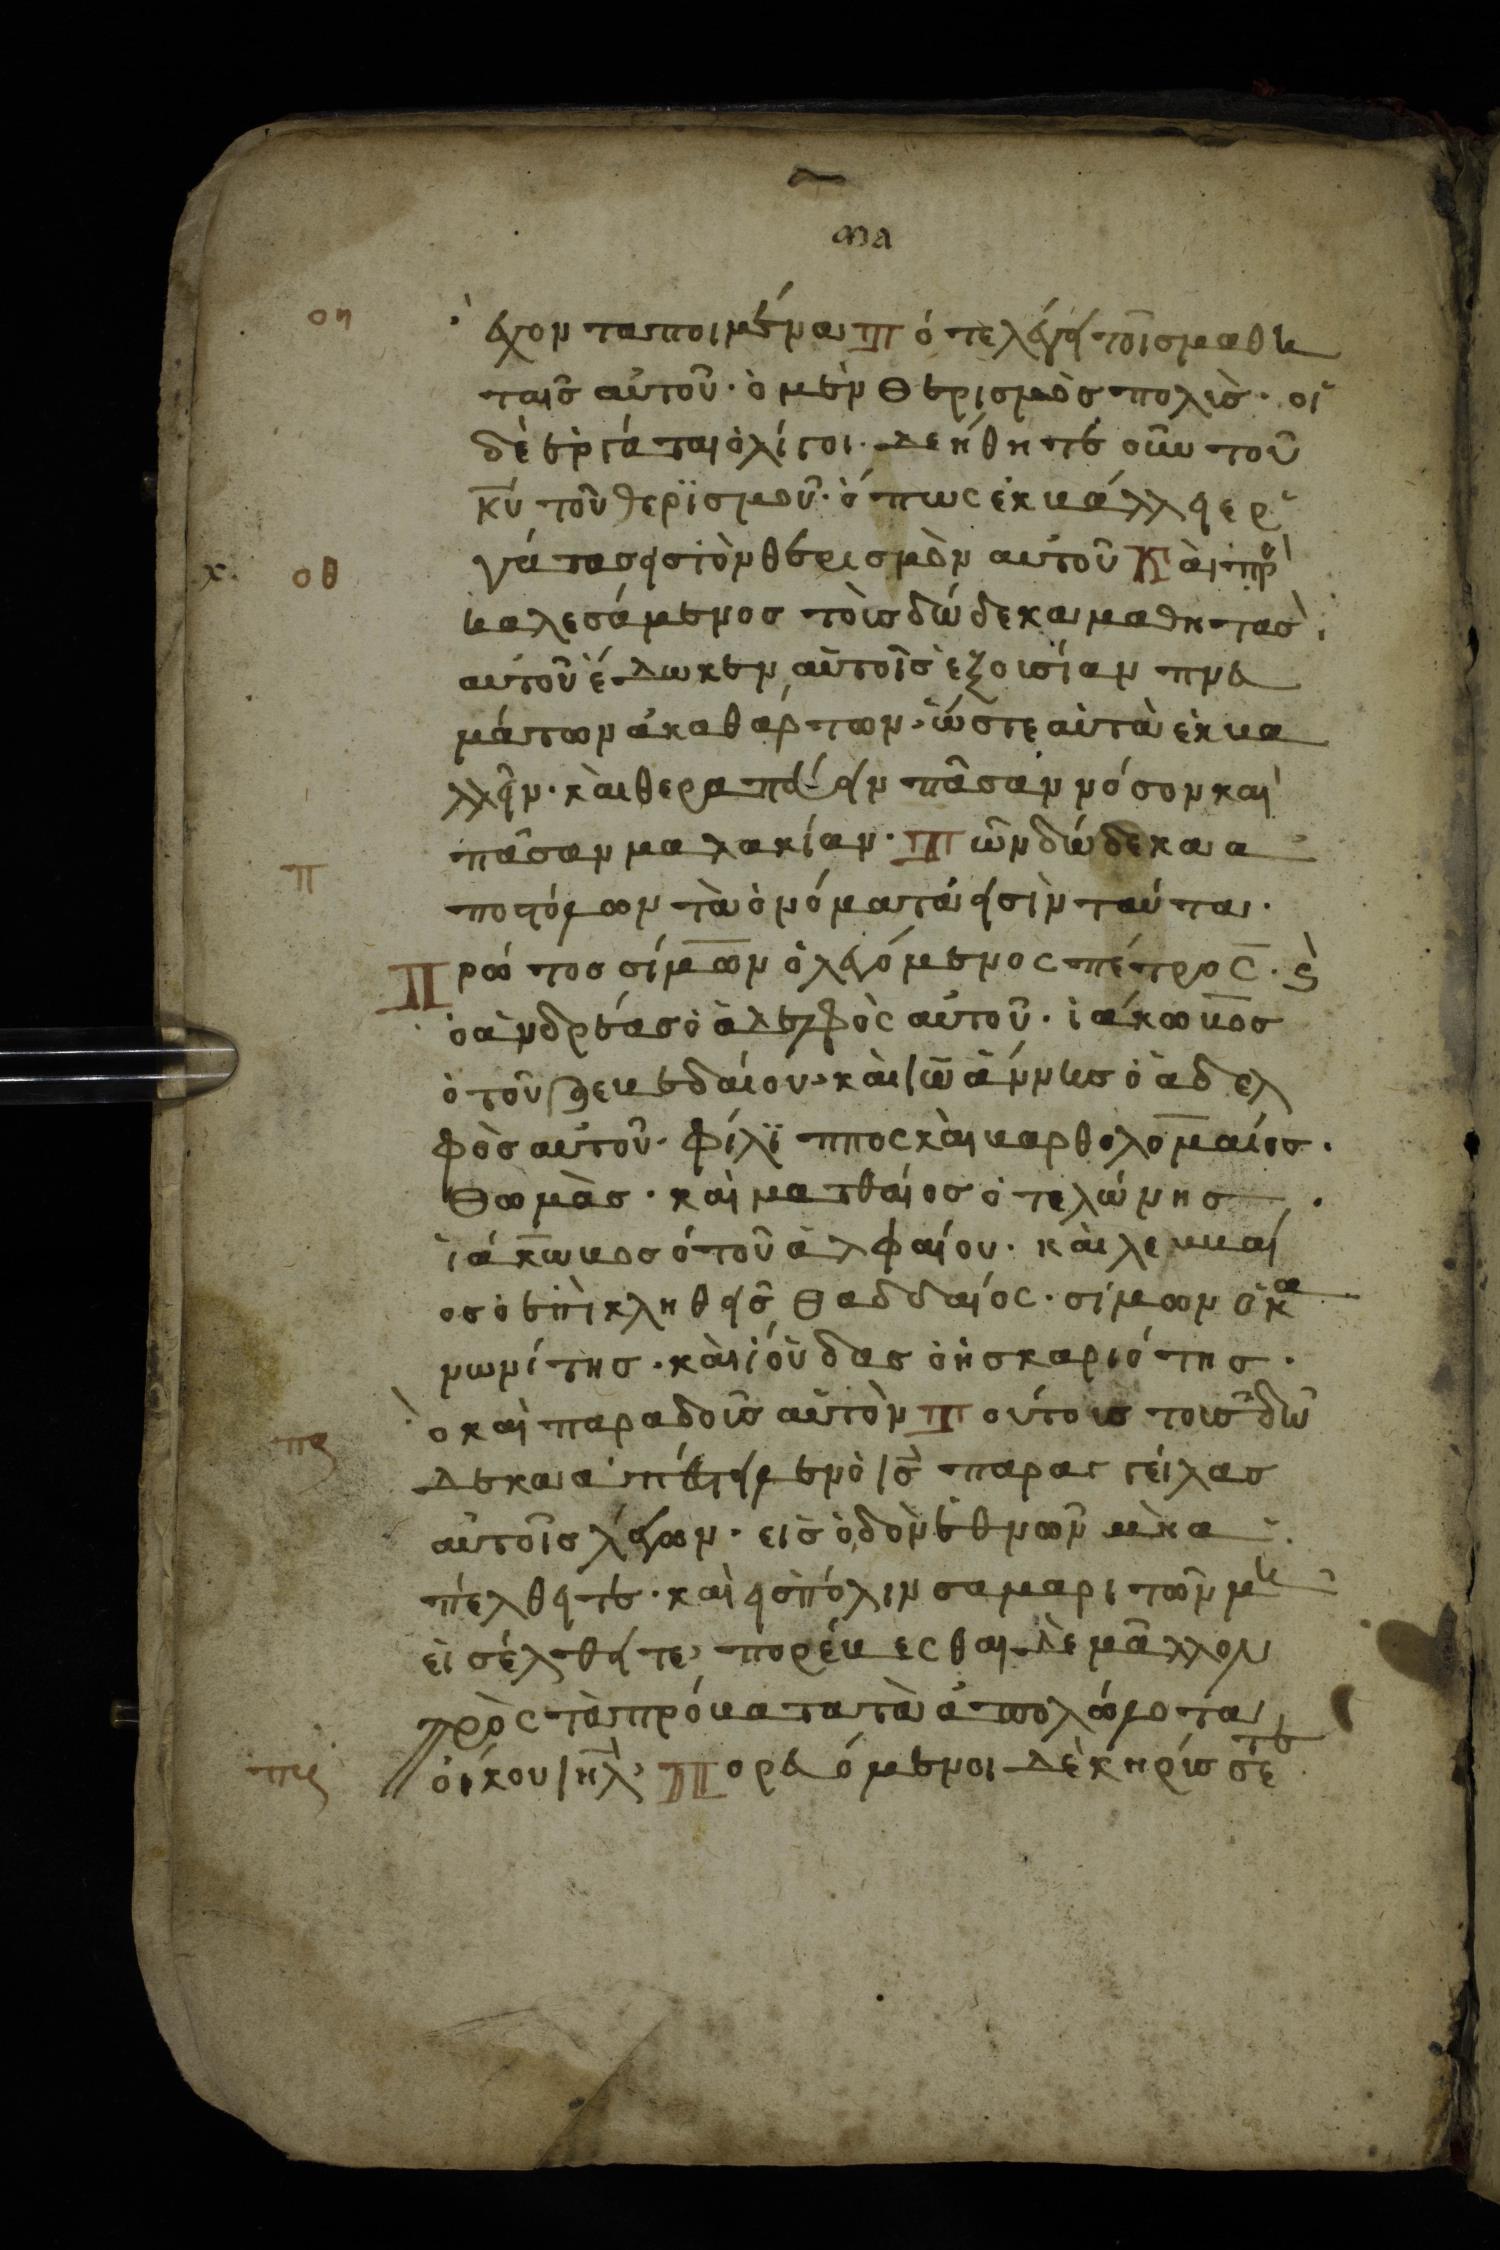 μα
οη
ἔχοντα ποιμένα Τότε λέγει τοῖς μαθη
ταῖς αὐτοῦ· ὁ μὲν θερισμὸς πολὺς· οἱ
δὲ ἐργάται ὀλίγοι· δεήθητε οὖν τοῦ
κυ τοῦ θερϊσμοῦ· ὅπως ἐκβάλλει ερ
οθ
γάτας εἰς τὸν θερισμὸν αὐτοῦ Κὰι πρ
καλεσάμενος τοὺς δώδεκα μαθητὰς
αὐτοῦ ἔδωκεν αὐτοῖς ἐξουσίαν πνευ
μάτων ἀκαθάρτων· ὥστε αὐτὰ ἐκβα
λλεῖν· κὰι θεραπεύειν πᾶσαν νόσον καὶ
π
πᾶσαν μαλακίαν· Τῶν δώδεκα α
ποστόλων τὰ ὀνόματά εἰσὶν ταύτα·
Πρώτος σίμων ὁ λεγόμενος πέτρος· ϗ
ὁ ἀνδρέας ὁ ἀδελφὸς αὐτοῦ· ἰάκωβος
ὁ τοῦ ζεβεδαίου· κὰι ἰωάννης ὁ ἀδελ
φὸς αὐτοῦ· φίλϊππος κὰι βαρθολομαίος·
Θωμὰς· καὶ ματθαίος ὁ τελώνης·
ἰάκωβος ὁ τοῦ ἀλφαίου· κὰι λεββαί
ος ὁ ἐπικληθεῖς Θαδδαίος· σίμων ὁ κα
νωνίτης· κὰι ἰούδας ὁ ἠσκαριότης·
ὁ καὶ παραδοῦς αὐτὸν Τούτους τοὺς δώ
πα
δεκα ἀπέστειλεν ὁ ις παραγγείλας
αὐτοῖς λέγων· εἰς ὁδὸν ἐθνῶν μὴ α
πέλθητε· καὶ εἰς πόλιν σαμαριτῶν μὴ
εἰσέλθητε· πορεύεσθαι δὲ μᾶλλον
πρὸς τὰ πρόβατα τὰ ἀπολωλότα
πβ
οίκου ιηλ· Πορευόμενοι δὲ κηρύσσετε